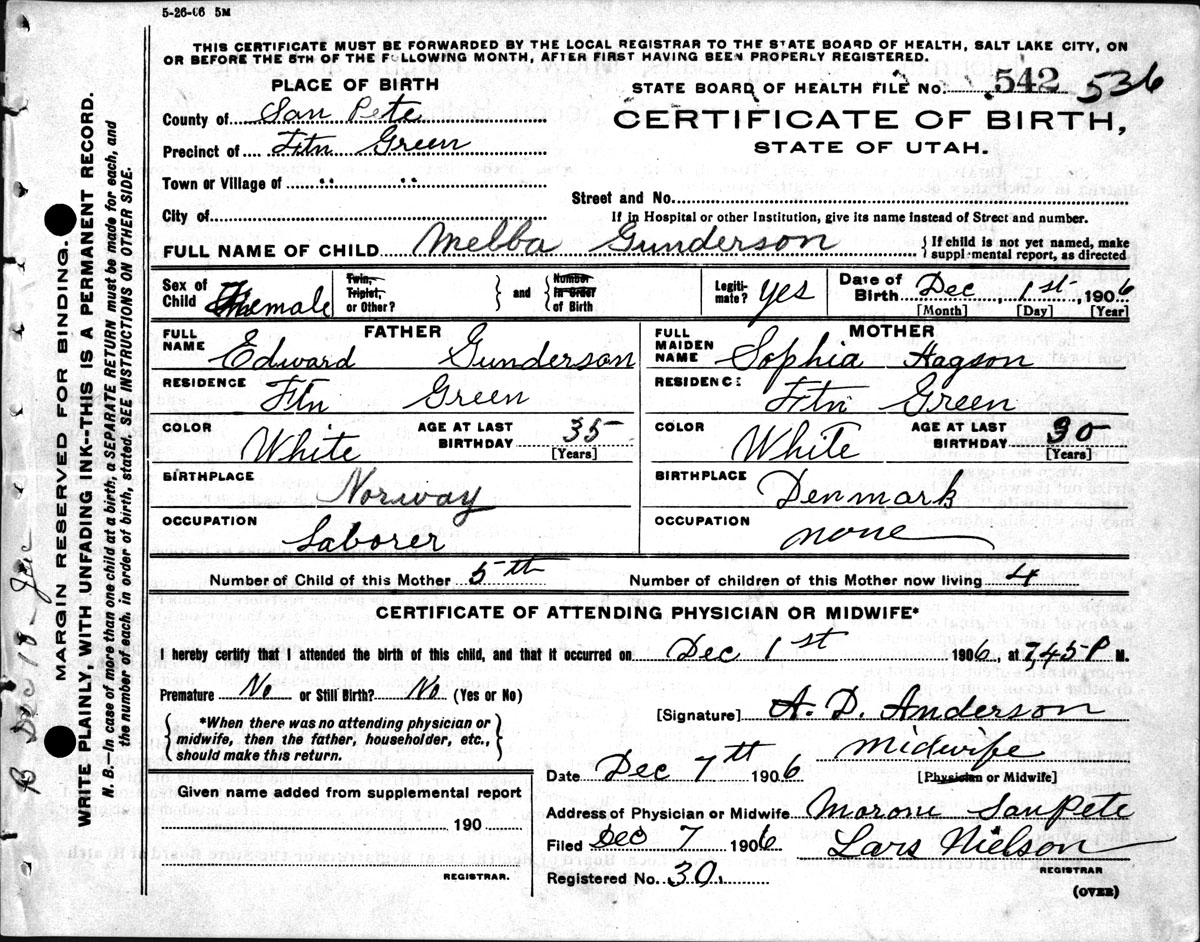 5-26-06 5M
THIS CERTIFICATE MUST BE FORWARDED BY THE LOCAL REGISTRAR TO THE STATE BOARD OF HEALTH, SALT LAKE CITY, ON
OR BEFORE THE 5TH OF THE FOLLOWING MONTH, AFTER FIRST HAVING BEEN PROPERLY REGISTERED.
PLACE OF BIRTH
STATE BOARD OF HEALTH FILE No. 542 536
County of San Pete
CERTIFICATE OF BIRTH,
Precinct of Ftn Green
STATE OF UTAH.
Town or Village of
Street and No.
City of
If in Hospital or other Institution, give its name instead of Street and number.
FULL NAME OF CHILD Melba Gunderson
{ If child is not yet named, make
supplemental report, as directed
Sex of Child Female
Twin, Triplet, or Other? } and { Number in Order of Birth
Legitimate? Yes
Date of Birth Dec, 1st, 1906
[Month] [Day] [Year]
FATHER
FULL NAME Edward Gunderson
MOTHER
FULL MAIDEN NAME Sophia Hagson
RESIDENCE Ftn Green
RESIDENCE Ftn Green
COLOR White AGE AT LAST BIRTHDAY 35 [Years]
COLOR White AGE AT LAST BIRTHDAY 30 [Years]
BIRTHPLACE Norway
BIRTHPLACE Denmark
OCCUPATION Laborer
OCCUPATION none
Number of Child of this Mother 5th Number of children of this Mother now living 4
CERTIFICATE OF ATTENDING PHYSICIAN OR MIDWIFE*
I hereby certify that I attended the birth of this child, and that it occurred on Dec 1st 1906, at 7,45 P M.
Premature No or Still Birth? No (Yes or No)
[Signature] A. D. Anderson
{ *When there was no attending physician or
midwife, then the father, householder, etc.,
should make this return. }
Midwife
Date Dec 7th 1906 [Physician or Midwife]
Given name added from supplemental report
190
REGISTRAR.
Address of Physician or Midwife Moroni SanPete
Filed Dec 7 1906 Lars Nielson
REGISTRAR
Registered No. 30.
(OVER)
MARGIN RESERVED FOR BINDING.
WRITE PLAINLY, WITH UNFADING INK--THIS IS A PERMANENT RECORD.
N. B.—In case of more than one child at a birth, a SEPARATE RETURN must be made for each, and
the number of each, in order of birth, stated. SEE INSTRUCTIONS ON OTHER SIDE.
B Dec 18